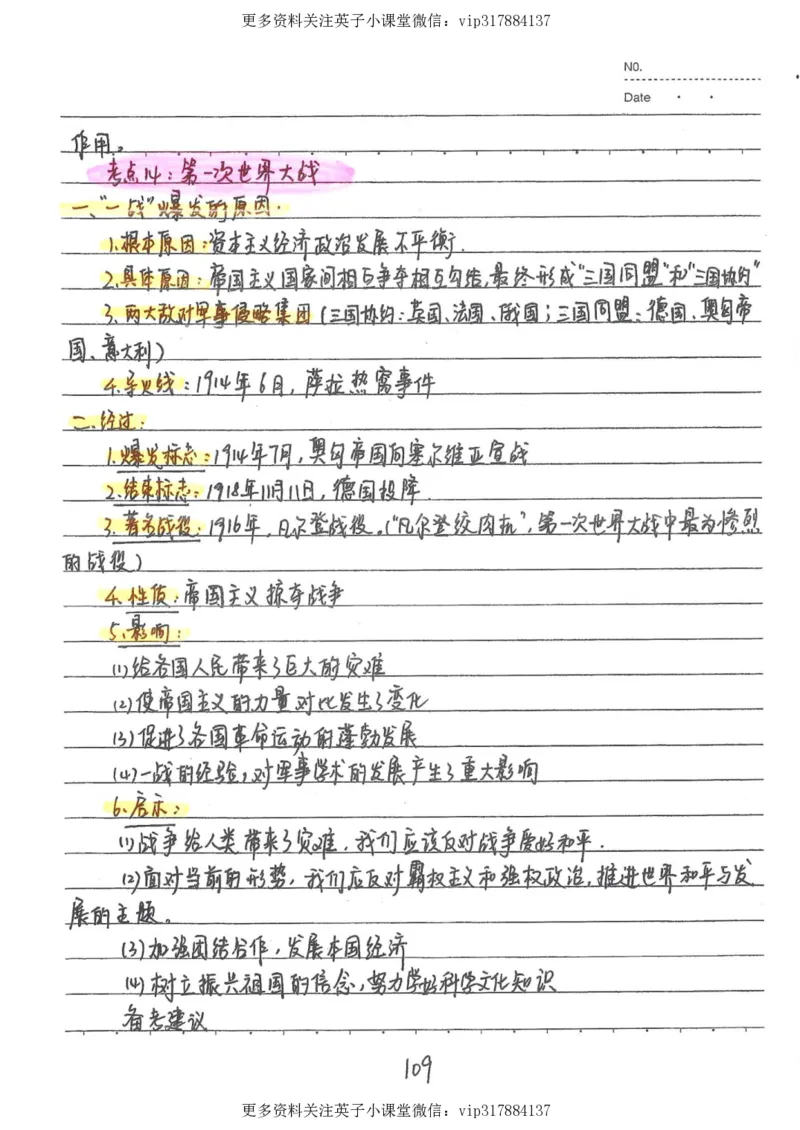 更多资料关注英子小课堂微信：vip317884137
NO.
Date · ·
作用。
考点14：第一次世界大战
一、"一战"爆发的原因.
1.根本原因：资本主义经济政治发展不平衡.
2.具体原因：帝国主义国家间相互争夺相互勾结,最终形成"三国同盟"和"三国协约"
3.两大敌对军事侵略集团（三国协约：英国、法国、俄国；三国同盟：德国、奥匈帝
国、意大利）
4.导火线：1914年6月，萨拉热窝事件
二.经过：
1.爆发标志：1914年7月，奥匈帝国向塞尔维亚宣战
2.结束标志：1918年11月11日，德国投降.
3.著名战役：1916年，凡尔登战役。（"凡尔登绞肉机"，第一次世界大战中最为惨烈
的战役）
4.性质：帝国主义掠夺战争
5.影响：
(1)给各国人民带来了巨大的灾难
(2)使帝国主义的力量对比发生了变化
(3)促进了各国革命运动的蓬勃发展
(4)一战的经验，对军事学术的发展产生了重大影响
6.启示：
(1)战争给人类带来了灾难，我们应该反对战争爱好和平.
(2)面对当前的形势，我们应反对霸权主义和强权政治，推进世界和平与发
展的主题。
(3)加强团结合作，发展本国经济
(4)树立振兴祖国的信念，努力学好科学文化知识
备考建议
109
更多资料关注英子小课堂微信：vip317884137